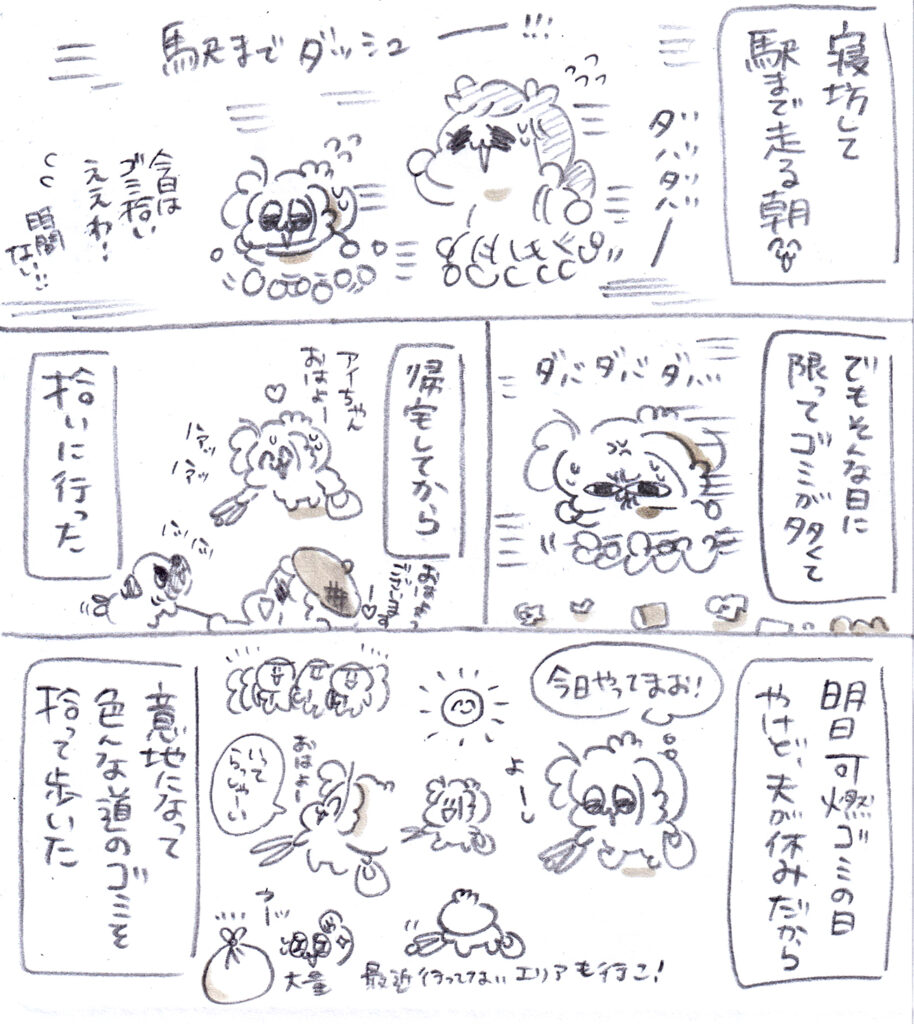 寝坊して
駅まで走る朝
駅までダッシュー!!!
ダッ
バッ
ダッ
バー
今日は
ゴミ拾い
ええわ!
時間
ない!!
でもそんな日に
限ってゴミが多くて
ダバダバダバ
帰宅してから
アイちゃん
おはよー
ハァッ
ハァッ
拾いに行った
明日可燃ゴミの日
やけど、夫が休みだから
今日やってまお!
よーし
おはよー
いって
らっしゃーい
最近行ってないエリアも行こ!
大量
意地になって
色んな道のゴミを
拾って歩いた